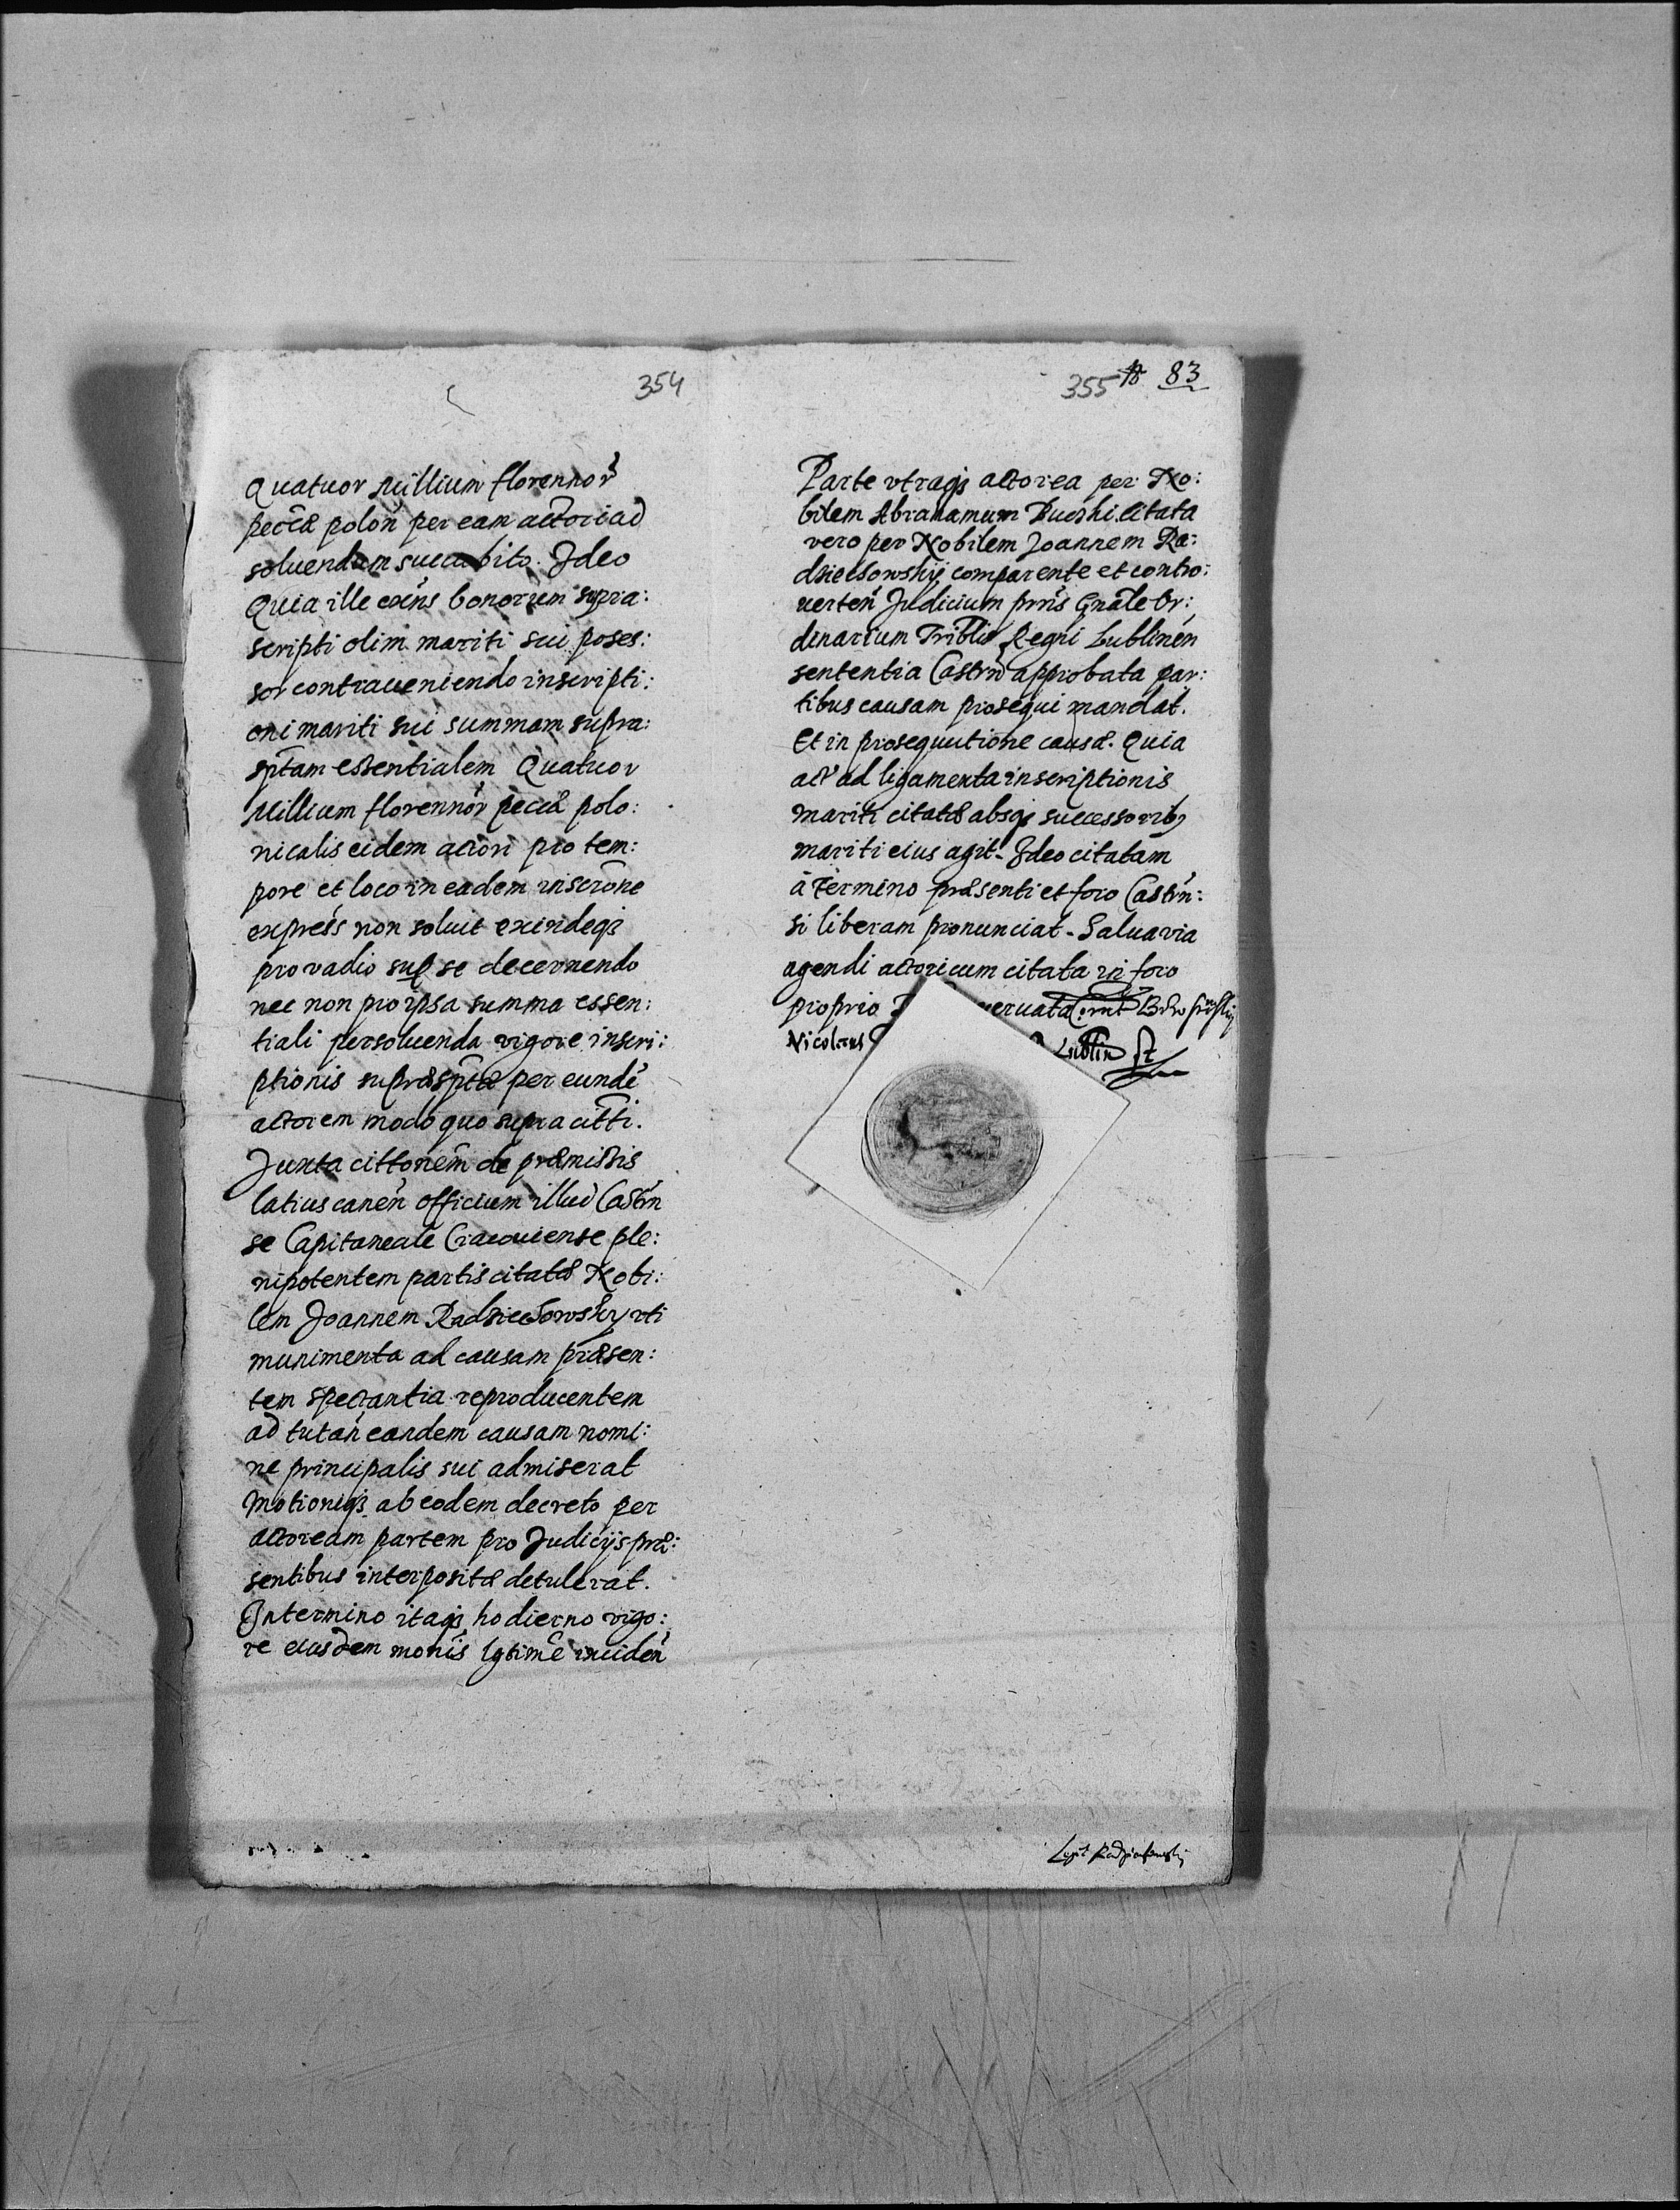 354
Quatuor Millium florennor̃
peccæ̃ polon̄ per eam actori ad
soluendam succubito. Ideo
Quia ille exn̄s bonorum supra:
scripti olim mariti sui poses:
sor contraueniendo inscripti:
oni mariti sui summam supra:
sptam essentialem Quatuor
Millium florennor̃ pecciæ polo:
nicalis eidem actori pro tem:
pore et loco in eadem inscrōne
express̄ non soluit exindeq3
pro vadio sup se decernendo
nec non pro ipsa summa essen:
tiali persoluenda vigore inscri:
ptionis supræsptæ per eundē
actorem modo quo supra citti.
Juxta cittonēm de præmissis
latius canen̄ officium illud Castrn̄
se Capitaneale Cracouiense ple:
nipotentem partis citatæ Nobi:
lem Joannem Radziechowsky vti
munimenta ad causam præsen:
tem spectantia reproducentem
ad tutan̄ eandem causam nomi:
ne principalis sui admiserat
Motioniq3 ab eodem decreto per
actoream partem pro Judicijs præ:
sentibus interpositæ detulerat.
In termino itaq3 hodierno vigo:
re eiusdem monīs lgtimē inciden̄
355 83
Parte vtraq3 actorea per No:
bilem Abrahamum citata
vero per Nobilem Joannem Ra:
dziechowskij comparente et contro:
uerten̄ Judicium prn̄s Gnāle Or:
dinarium Triblis Regni Lublinen̄
sententia Castrn̄ approbata par:
tibus causam prosequi mandat.
Et in prosequutione causæ. Quia
act' ad ligamenta inscriptionis
mariti citatæ absq3 successorib9
mariti eius agit. Ideo citatam
à termino præsenti et foro Castrn̄:
si liberam pronunciat. Salua via
agendi actori cum citata in foro
proprio eruata
Nicolaus Lublin